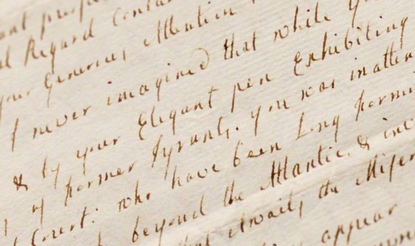 al Regard
your Generous Attention
I never imagined that while y
& by your Elegant pen Exhibiting
of former Tyrants. you was inatten
Court: who have been Long
beyond the Atlantic, &
awaits the
appear